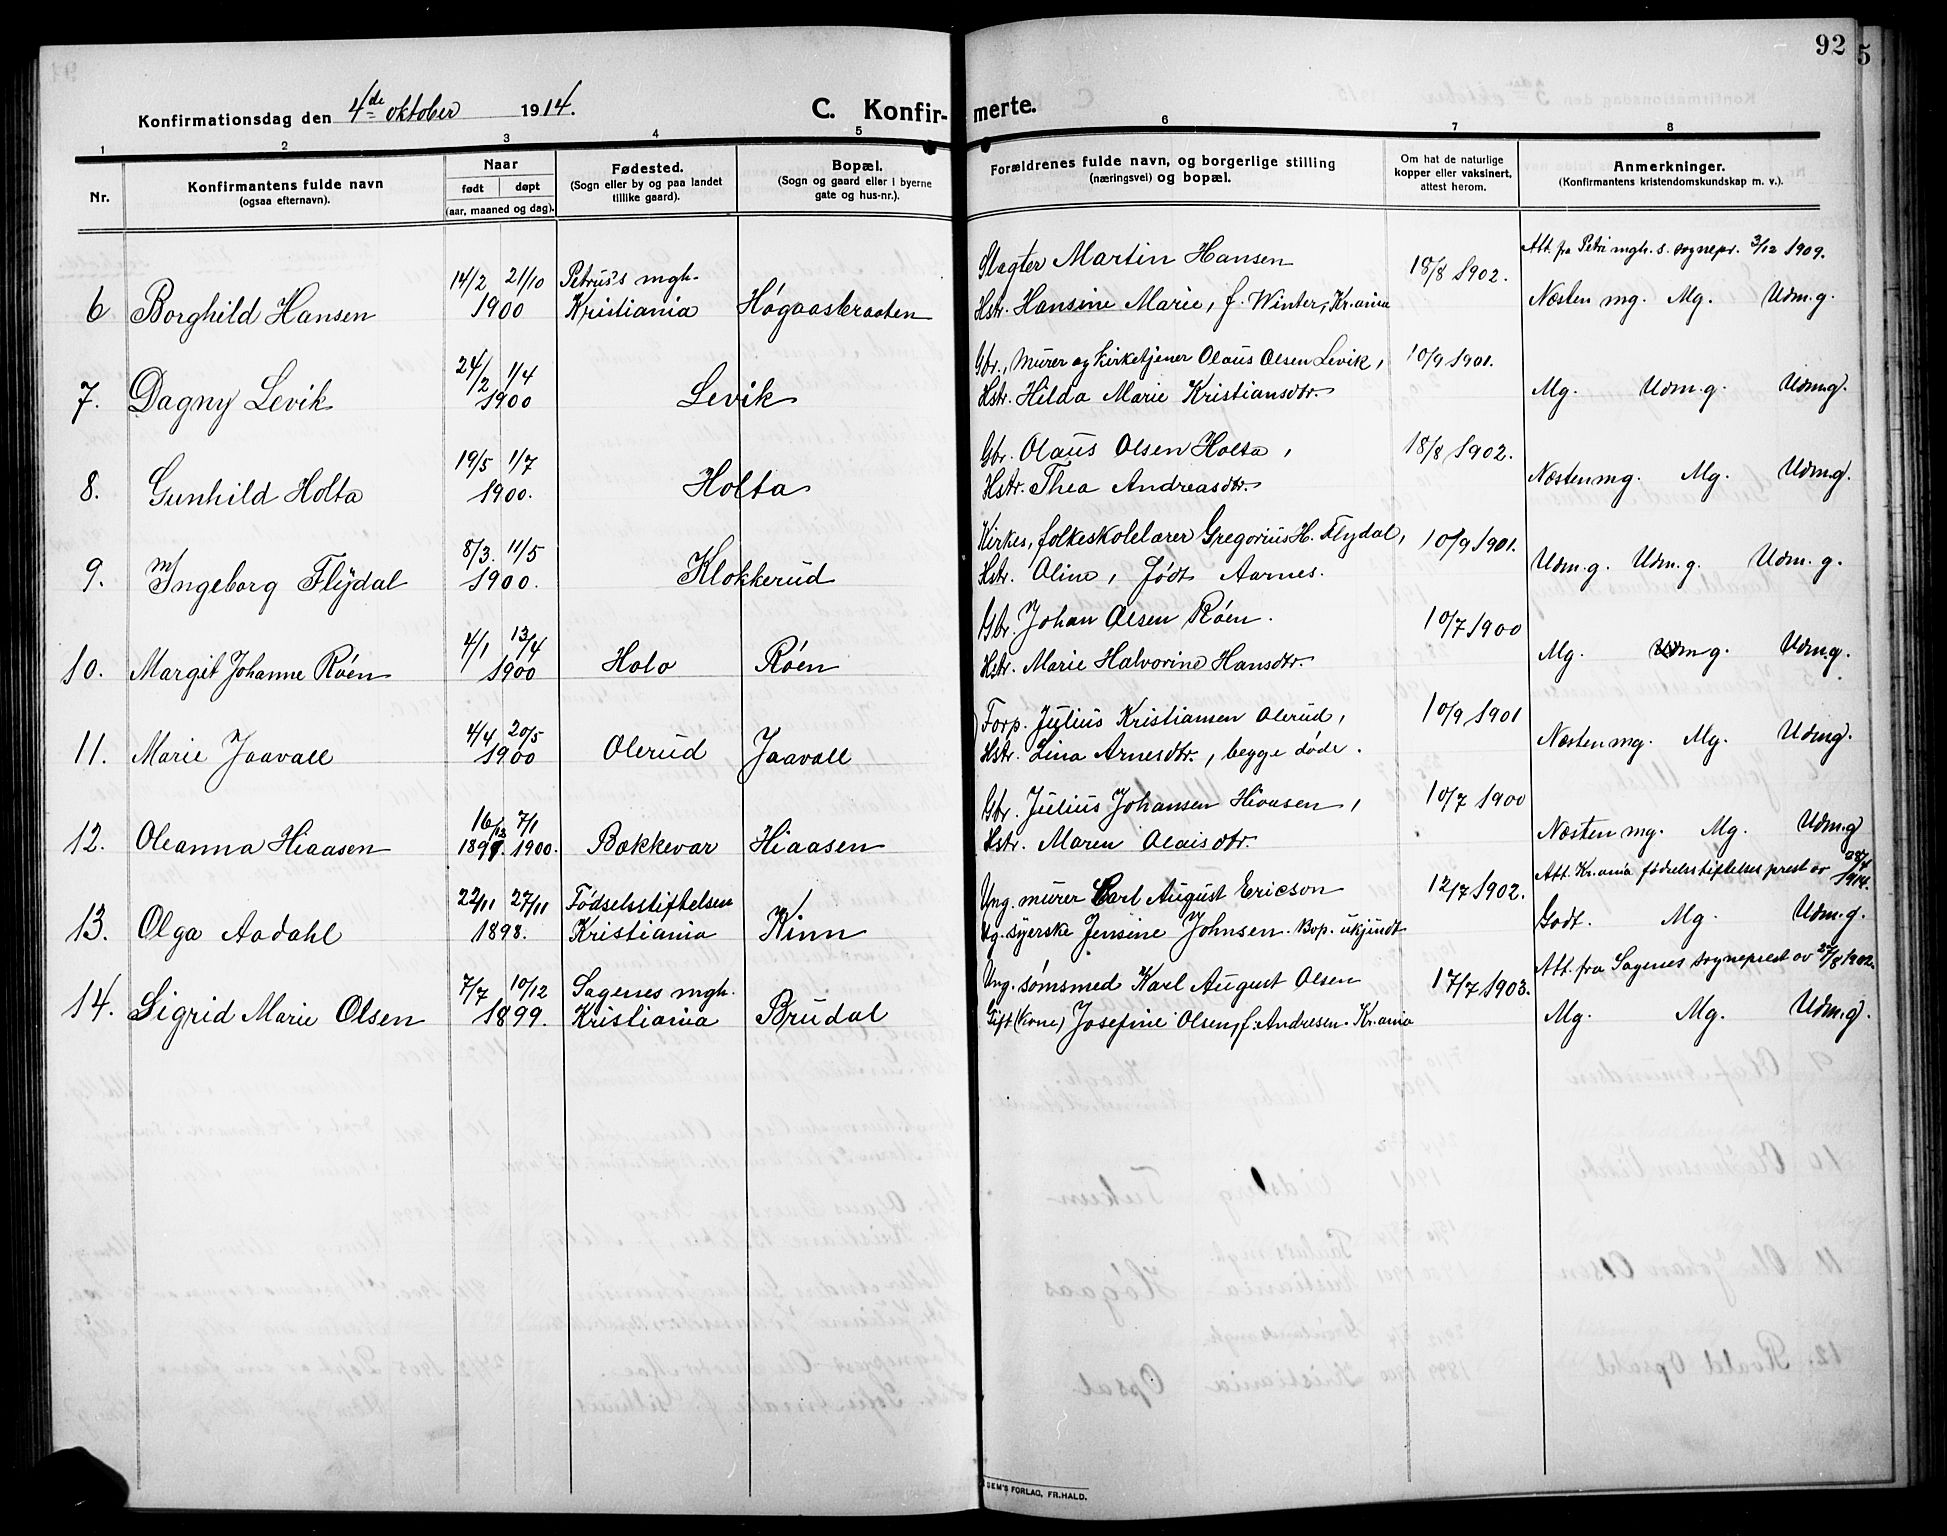 92
5
Konfirmationsdag den 4de oktober 1914.
C. Konfir- merte.
1 2 3 4 5 6 7 8
Nr.
Konfirmantens fulde navn
(ogsaa efternavn).
Naar
født døpt
(aar, maaned og dag).
Fødested.
(Sogn eller by og paa landet
tillike gaard).
Bopæl.
(Sogn og gaard eller i byerne
gate og hus-nr.).
Forældrenes fulde navn, og borgerlige stilling
(næringsvei) og bopæl.
Om hat de naturlige
kopper eller vaksinert,
attest herom.
Anmerkninger.
(Konfirmantens kristendomskundskap m. v.).
14/2 21/10 Petrus's mgh. Slagter Martin Hansen 18/8 1902. Att. fra Petri mgh. s. sognepr. 3/12 1909.
6 Borghild Hansen 1900 Kristiania Høgaasbraaten Hstr. Hansine Marie, f. Winter, Kr.ania Næsten mg. Mg. Udm.g.
24/2 1/4 Gbr., murer og kirketjener Olaus Olsen Levik, 10/9 1901.
7. Dagny Levik 1900 Levik Hstr. Hilda Marie Kristiansdtr. Mg. Udm.g. Udm.g.
19/5 1/7 Gbr. Olaus Olsen Holta, 18/8 1902.
8. Gunhild Holta 1900. Holta Hstr. Thea Andreasdtr. Næsten mg. Mg. Udm.g.
8/3. 11/5 Kirkes., folkeskolelærer Gregorius H. Flydal, 10/9 1901.
9. Ingeborg Flydal 1900. Klokkerud Hstr. Oline, født Aarnes. Udm.g. Udm.g. Udm.g.
4/1 13/4 Gbr. Johan Olsen Røen. 10/7 1900
10. Margit Johanne Røen 1900 Holo Røen Hstr. Marie Halvorine Hansdtr. Mg. Udm g. Udm.g.
4/4 20/5 Forp. Julius Kristiansen Olerud, 10/9 1901
11. Marie Jaavall 1900 Olerud Jaavall Hstr. Lina Arnesdtr., begge døde. Næsten mg. Mg. Udm.g.
16/12 7/1 Gbr. Julius Johansen Hiaasen, 10/7 1900
12. Oleanna Hiaasen 1899. 1900. Bækkevar Hiaasen Hstr. Maren Olaisdtr. Næsten mg. Mg. Udm.g
22/11 27/11 Fødselsstiftelsen Ung. murer Carl August Ericson 12/7 1902. Att. Kr.ania fødselsstiftelses prest av 1914.
13. Olga Aadahl 1898. Kristiania Kinn Ug. syerske Jensine Johnsen. Bop. ukjendt Godt. Mg. Udm.g.
7/7 10/12 Sagenes mgh. Ung. sømsmed Karl August Olsen 17/7 1903. Att. fra Sagenes sogneprest av 27/8 1902.
14. Sigrid Marie Olsen 1899. Kristiania Brudal Gift (kone) Josefine Olsen, f. Andresen. Kr.ania Mg. Mg. Udm.g.
SEM'S FORLAG, FR.HALD.